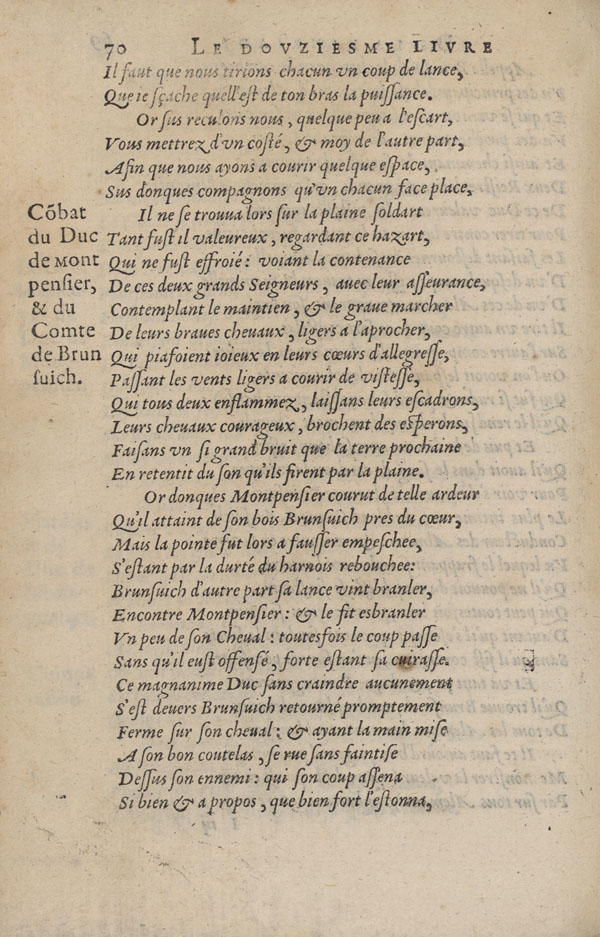 70 LE DOVZIESME LIVRE
Il faut que nous tirions chacun vn coup de lance,
Que ie sçache quell'est de ton bras la puissance.
Or sus reculons nous, quelque peu a l'escart,
Vous mettrez d'vn costé, & moy de l'autre part,
Afin que nous ayons a courir quelque espace,
Sus donques compagnons qu'vn chacun face place,
Il ne se trouua lors sur la plaine soldart
Tant fust il valeureux, regardant ce hazart,
Qui ne fust effroié: voiant la contenance
De ces deux grands Seigneurs, auec leur asseurance,
Contemplant le maintien, & le graue marcher
De leurs braues cheuaux, ligers a l'aprocher,
Qui piafoient ioieux en leurs cœurs d'allegresse,
Passant les vents ligers a courir de vistesse,
Qui tous deux enflammez, laissans leurs escadrons,
Leurs cheuaux courageux, brochent des esperons,
Faisans vn si grand bruit que la terre prochaine
En retentit du son qu'ils firent par la plaine.
Or donques Montpensier courut de telle ardeur
Qu'il attaint de son bois Brunsuich pres du cœur,
Mais la pointe fut lors a fausser empeschee,
S'estant par la durté du harnois rebouchee:
Brunsuich d'autre part sa lance vint branler,
Encontre Montpensier: & le fit esbranler
Vn peu de son Cheual: toutesfois le coup passe
Sans qu'il eust offensé, forte estant sa cuirasse.
Ce magnanime Duc sans craindre aucunement
S'est deuers Brunsuich retourné promptement
Ferme sur son cheual: & ayant la main mise
A son bon coutelas, se rue sans faintise
Dessus son ennemi: qui son coup assena
Si bien & a propos, que bien fort l'estonna,
Cōbat
du Duc
de Mont
pensier,
& du
Comte
de Brun
suich.